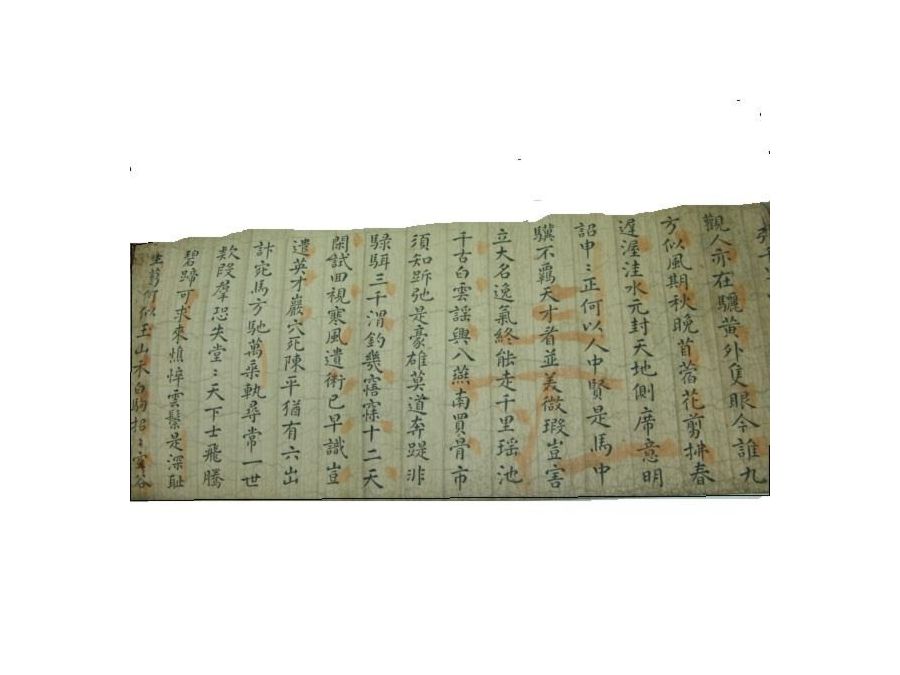 觀人亦在驪黃外隻眼今誰九
方似風期秋晚苜蓿花剪拂春
遲渥洼水元封天地側席意明
詔申〻正何以人中賢是馬中
驥不覊天才者並美微瑕豈害
立大名逸氣終能走千里瑶池
千古白雲謡興八燕南買骨市
須知跅弛是豪雄莫道奔踶非
騄駬三千渭釣幾寤寐十二天
閑試回視寒風遺術已早識豈
遣英才巖穴死陳平猶有六出
計宛馬方馳萬乘軌尋常一世
欵段羣恐失堂〻天下士飛騰
碧蹄可求來憔悴雲鬃是深耻
生蒭何似玉山禾白駒招〻空谷